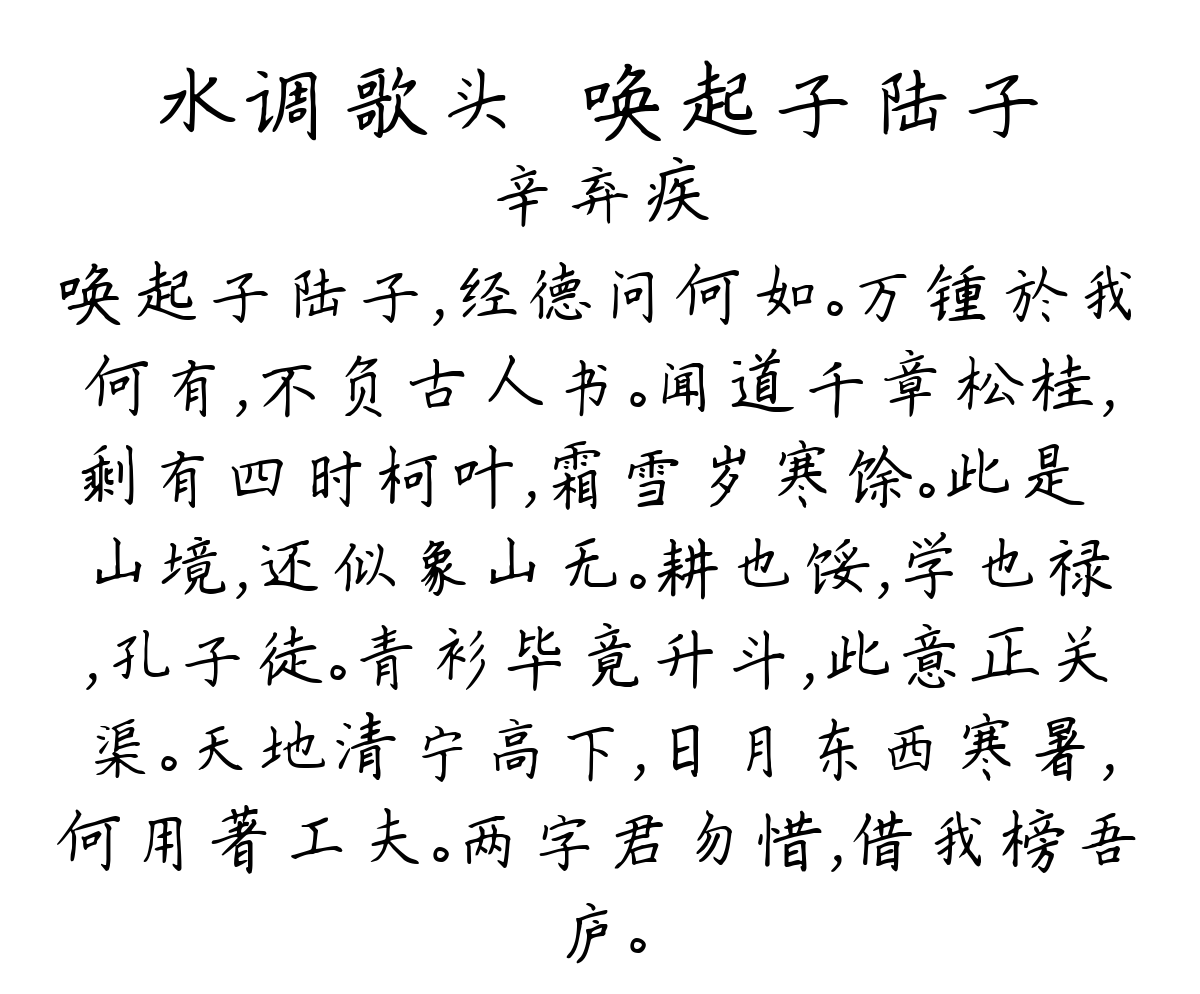 水调歌头 唤起子陆子
辛弃疾
唤起子陆子,经德问何如。万锺於我
何有,不负古人书。闻道千章松桂,
剩有四时柯叶,霜雪岁寒馀。此是
山境,还似象山无。耕也馁,学也禄
,孔子徒。青衫毕竟升斗,此意正关
渠。天地清宁高下,日月东西寒暑,
何用著工夫。两字君勿惜,借我榜吾
庐。